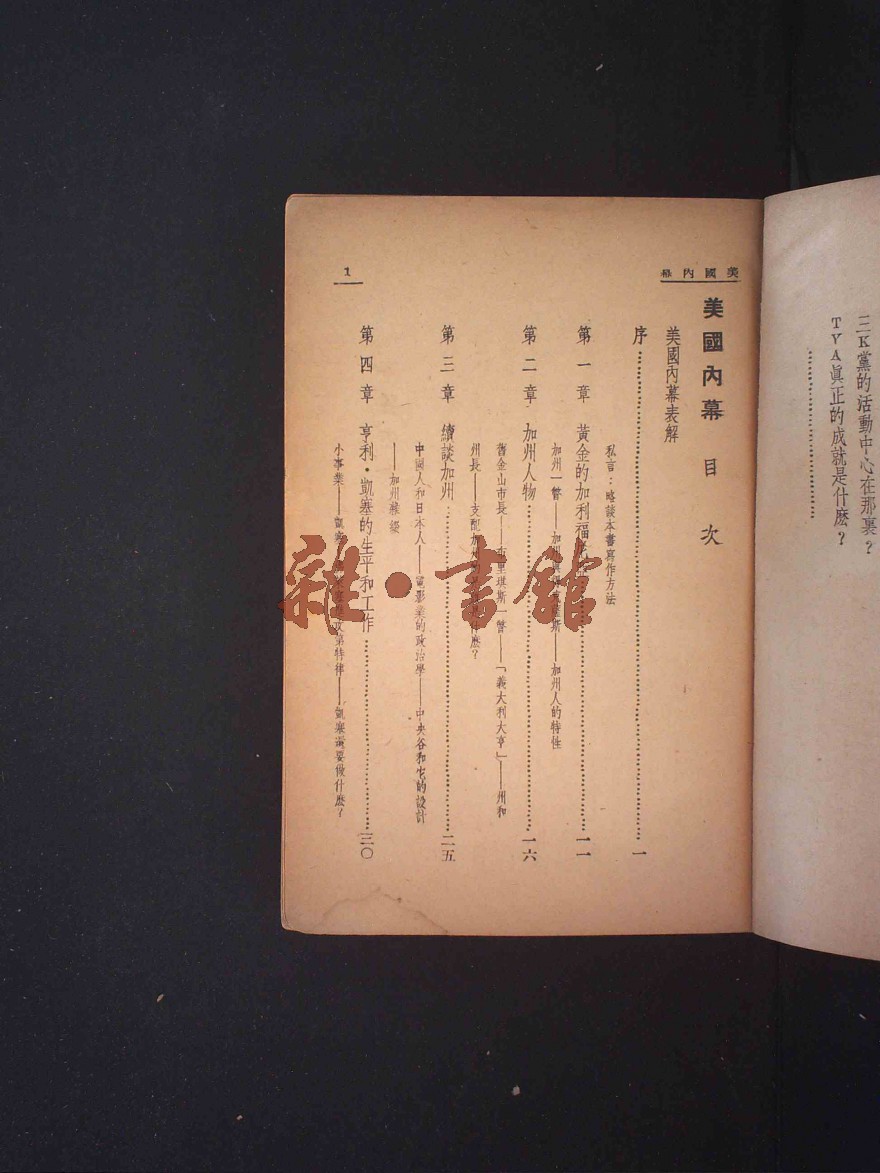 三K黨的活動中心在那裏？
TVA眞正的成就是什麽？
美國內幕
美國內幕 目次
美國內幕表解
序 一
私言：略談本書寫作方法
第一章 黃金的加利福 一一
加州一瞥——加州 斯——加州人的特性
第二章 加州人物 一六
舊金山市長—— 里琪斯一瞥——「義大利大亨」——州和
州長——支配加 什麽？
第三章 續談加州 二五
中國人和日本人——電影業的政治學——中央谷和它的設計
——加州雜綴
第四章 亨利·凱塞的生平和工作 三〇
小事業——凱 特律——凱塞還要做什麽？
1
雜·書館